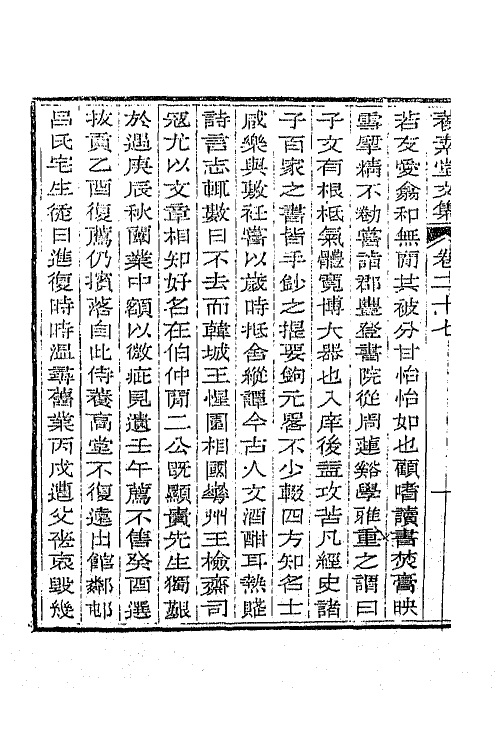 養素堂文集 卷二十七 一
若友愛翕和無間其被分甘怡怡如也顧嗜讀書焚膏映
雪摩精不勌嘗詣郡豐登書院從周蓮谿學雅重之謂曰
子文有根柢氣體寬博大器也入庠後益攻苦凡經史諸
子百家之書皆手鈔之提要鉤元畧不少輟四方知名士
咸樂與數社嘗以歲時抵舍縱譚今古人文酒酣耳熱賦
詩言志輒數日不去而韓城王惺園相國華州王檢齋司
冠尤以文章相知好名在伯仲間二公既顯貴先生獨艱
於遇庚辰秋闈業中額以微疵見遺壬午薦不售癸酉選
拔貢乙酉復薦仍擯落自此侍養高堂不復遠出館鄰邨
呂氏宅生徒日進復時時溫尋舊業丙戌遭父喪哀毀幾